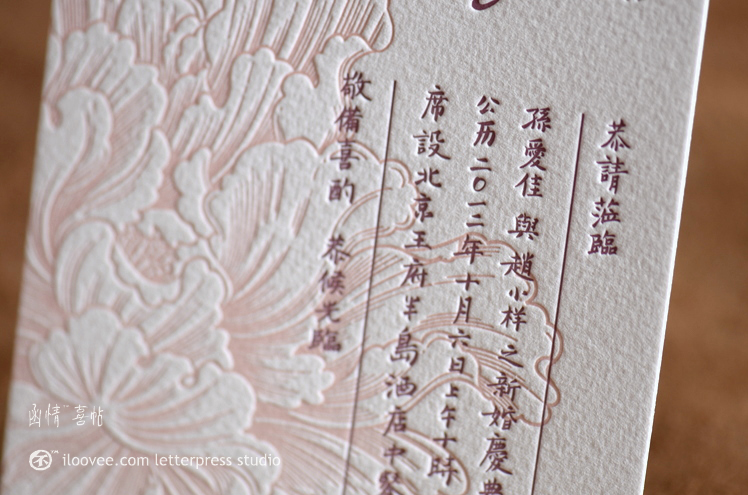 恭請蒞臨
孫愛佳 與 趙小样之新婚慶典
公历二〇一二年十月六日上午十时
席設北京王府半島酒店中
敬備喜酌 恭候光臨
函情 喜帖
iloovee.com letterpress studio